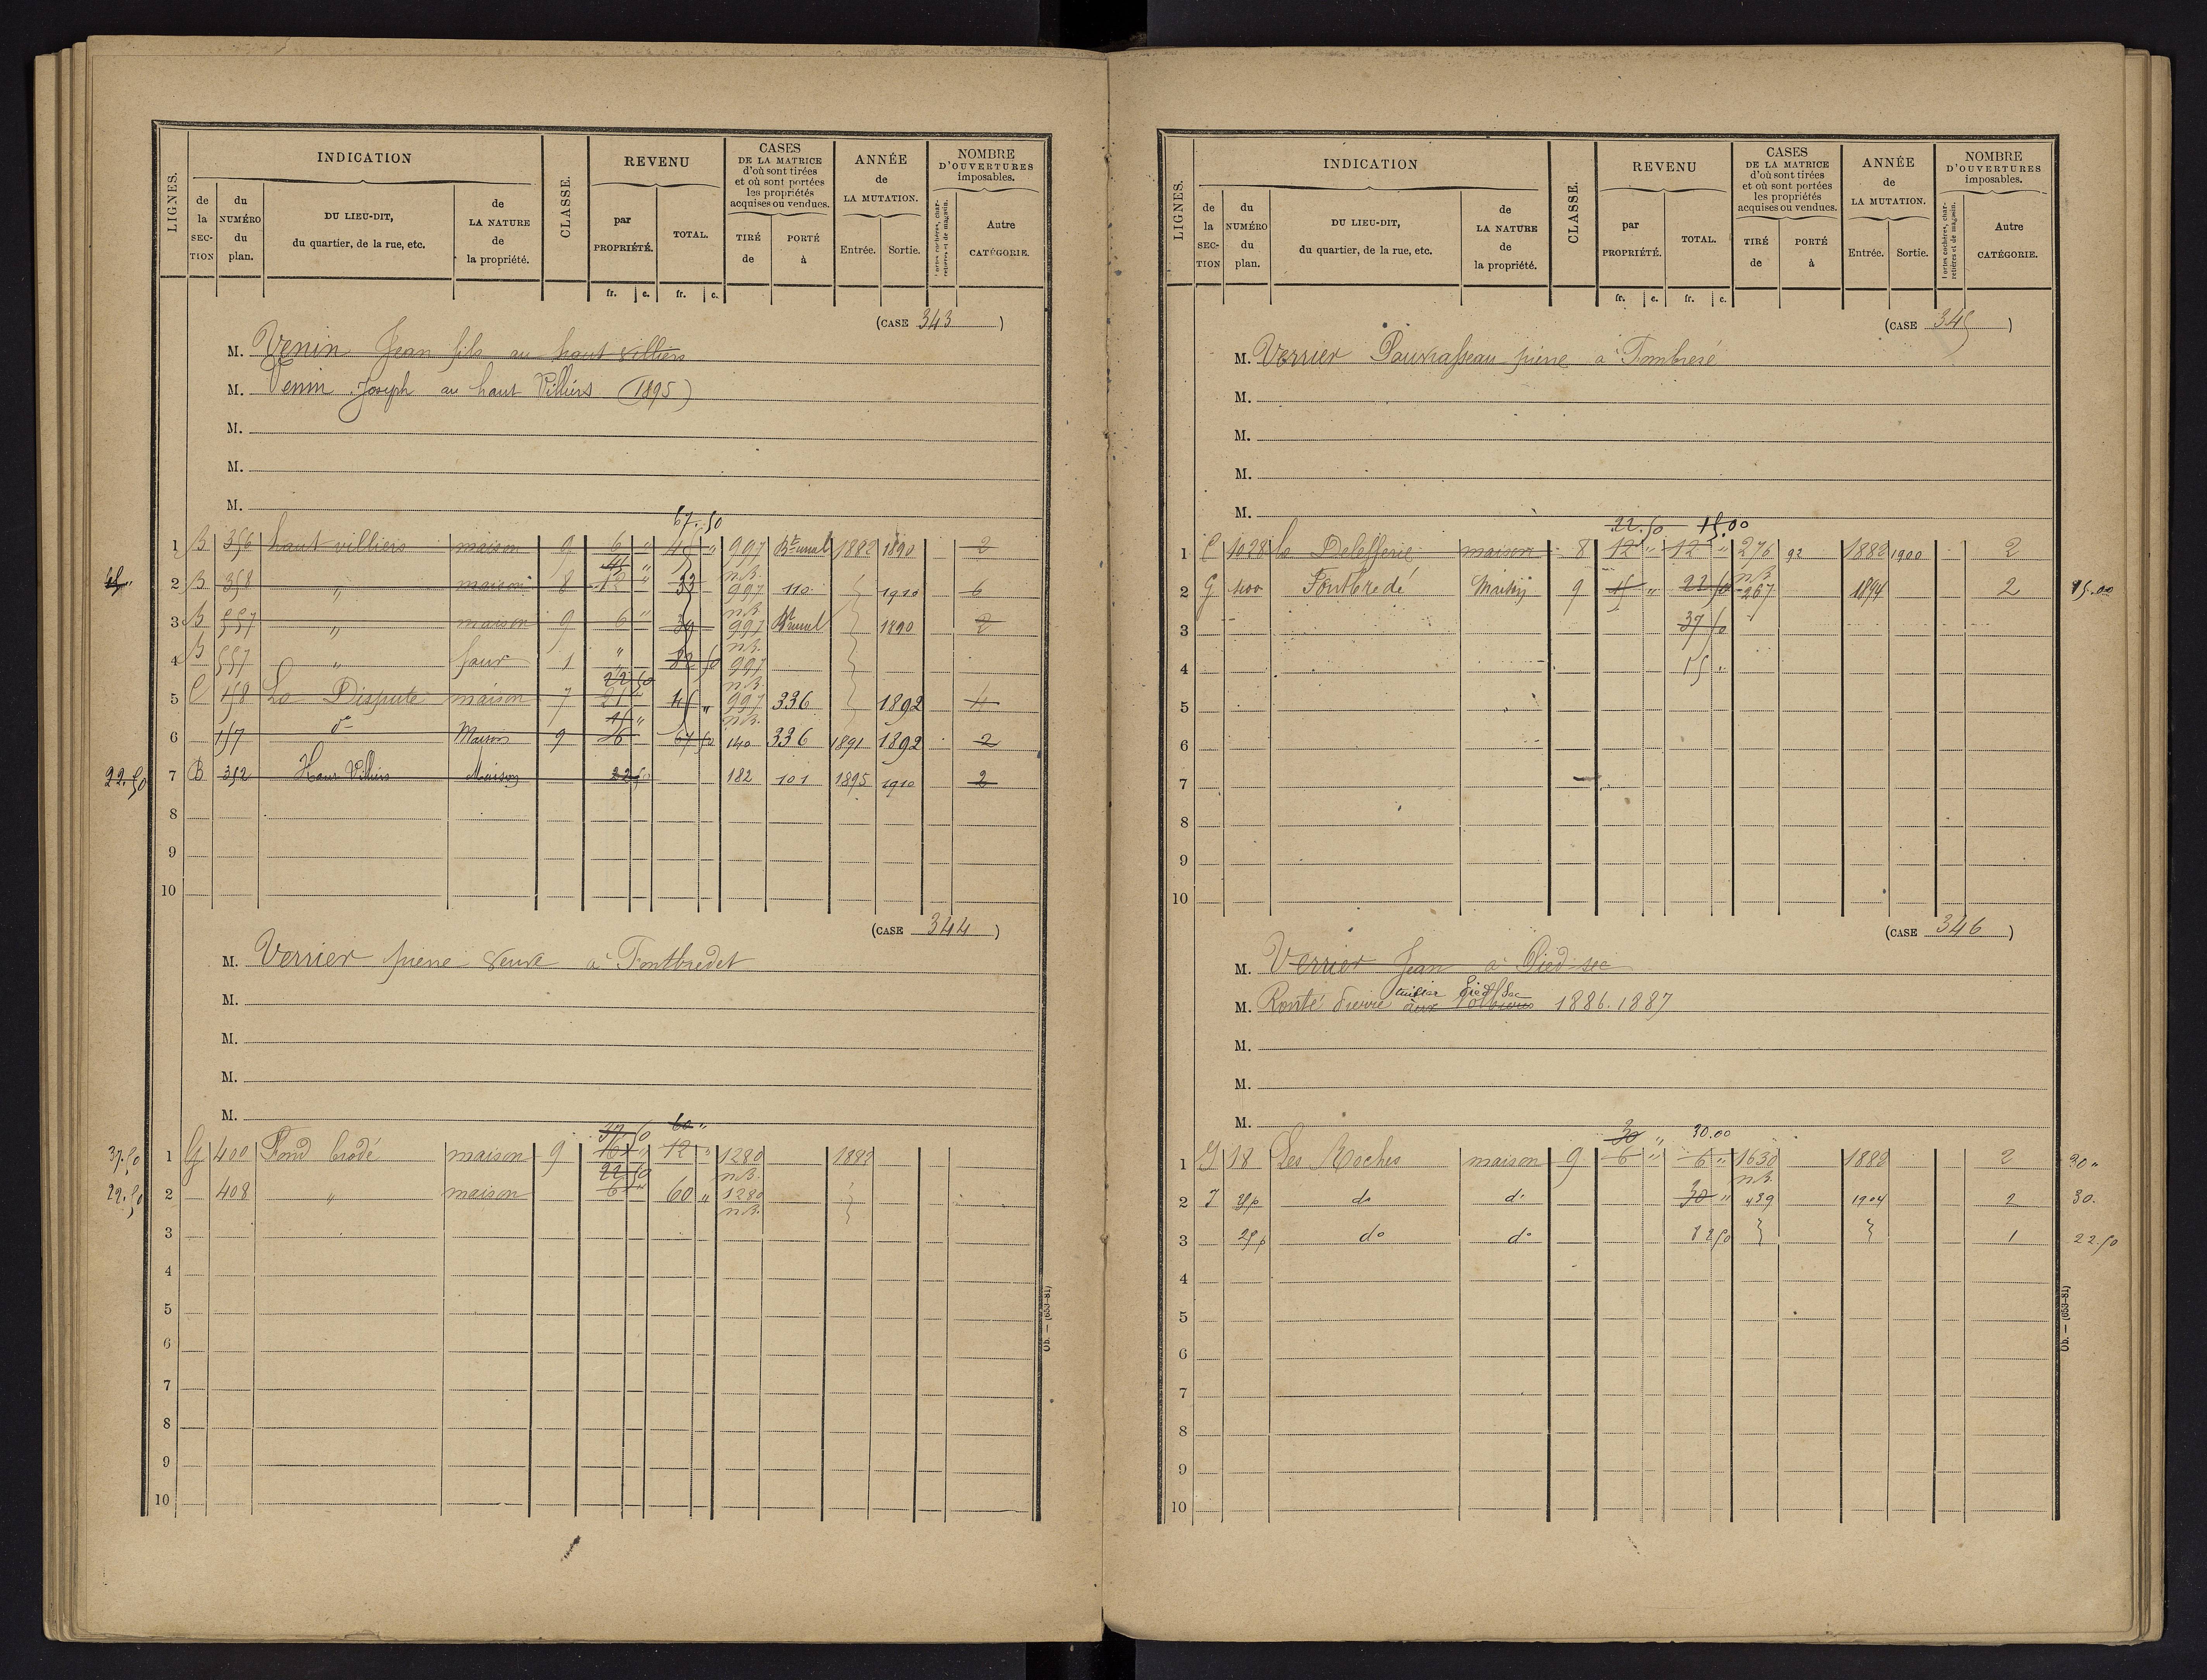 LIGNES.
INDICATION
CLASSE.
REVENU
CASES
DE LA MATRICE
d'où sont tirées
et où sont portées
les propriétés
acquises ou vendues.
ANNÉE
de
LA MUTATION.
NOMBRE
D'OUVERTURES
imposables.
de la SECTION
du NUMÉRO du plan.
DU LIEU-DIT,
du quartier, de la rue, etc.
de LA NATURE de la propriété.
par PROPRIÉTÉ.
TOTAL.
TIRÉ de
PORTÉ à
Entrée.
Sortie.
Portes cochères, charretières et de magasin.
Autre CATÉGORIE.
fr. c. fr. c.
(CASE 343)
M. Venin Jean fils au haut villiers
M. Venin Joseph au haut Villiers (1895)
M.
M.
M.
67.50
1 B 356 haut villiers maison 9 6 " 45 " 997 1882 1890 2
45 "
2 B 358 " maison 8 12 " 33 997 110 1910 6
3 B 557 " maison 9 6 " 997 1890 2
4 B 557 " four 1 " 82 50 997
22 50
5 C 158 La Dispute maison 7 21 45 " 997 336 1892 4
15 "
6 157 do Maison 9 6 67 50 140 336 1891 1892 2
22.50 7 B 352 Haut Villiers Maison 22 50 182 101 1895 1910 2
8
9
10
(CASE 344)
M. Verrier pierre veuve à Fontbredet
M.
M.
M.
M.
37 50 60 "
37.50 1 G 400 Fond brodé maison 9 12 " 1280 1882
22 50
22.50 2 408 " maison 6 60 " 1280
3
4
5
6
7
8
9
10
Ob. — (653-81)
LIGNES.
INDICATION
CLASSE.
REVENU
CASES
DE LA MATRICE
d'où sont tirées
et où sont portées
les propriétés
acquises ou vendues.
ANNÉE
de
LA MUTATION.
NOMBRE
D'OUVERTURES
imposables.
de la SECTION
du NUMÉRO du plan.
DU LIEU-DIT,
du quartier, de la rue, etc.
de LA NATURE de la propriété.
par PROPRIÉTÉ.
TOTAL.
TIRÉ de
PORTÉ à
Entrée.
Sortie.
Portes cochères, charretières et de magasin.
Autre CATÉGORIE.
fr. c. fr. c.
(CASE 345)
M. Verrier pierre à Fombredé
M.
M.
M.
M.
22.50 15.00
1 C 1028 la maison 8 12 " 12 " 276 92 1882 1900 2
2 G 400 Fontbredé Maison 9 15 " 22 50 267 1894 2 15.00
3 37 50
4 15 "
5
6
7
8
9
10
(CASE 346)
M. Verrier Jean à Pied sec
M. Ronté Pierre tuilier Pied Sec aux 1886.1887
M.
M.
M.
30 " 30.00
1 J 18 Les Roches maison 9 6 " 6 " 1630 1882 2 30 "
2 J do do 30 " 439 1904 2 30.
3 25p do do 82 50 1 22.50
4
5
6
7
8
9
10
Ob. — (653-81)